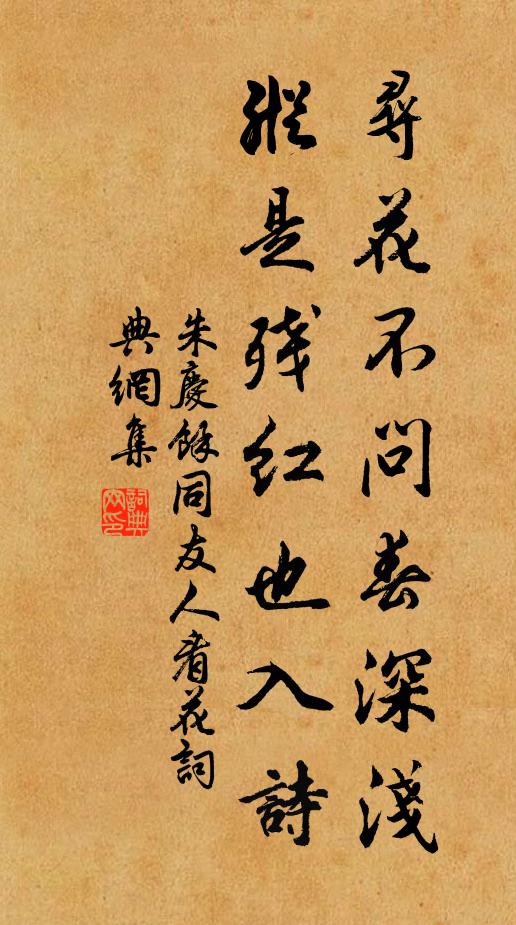 尋花不問春深淺
縱是殘紅也入詩
朱慶餘同友人看花詞
典網集
詞典
网印